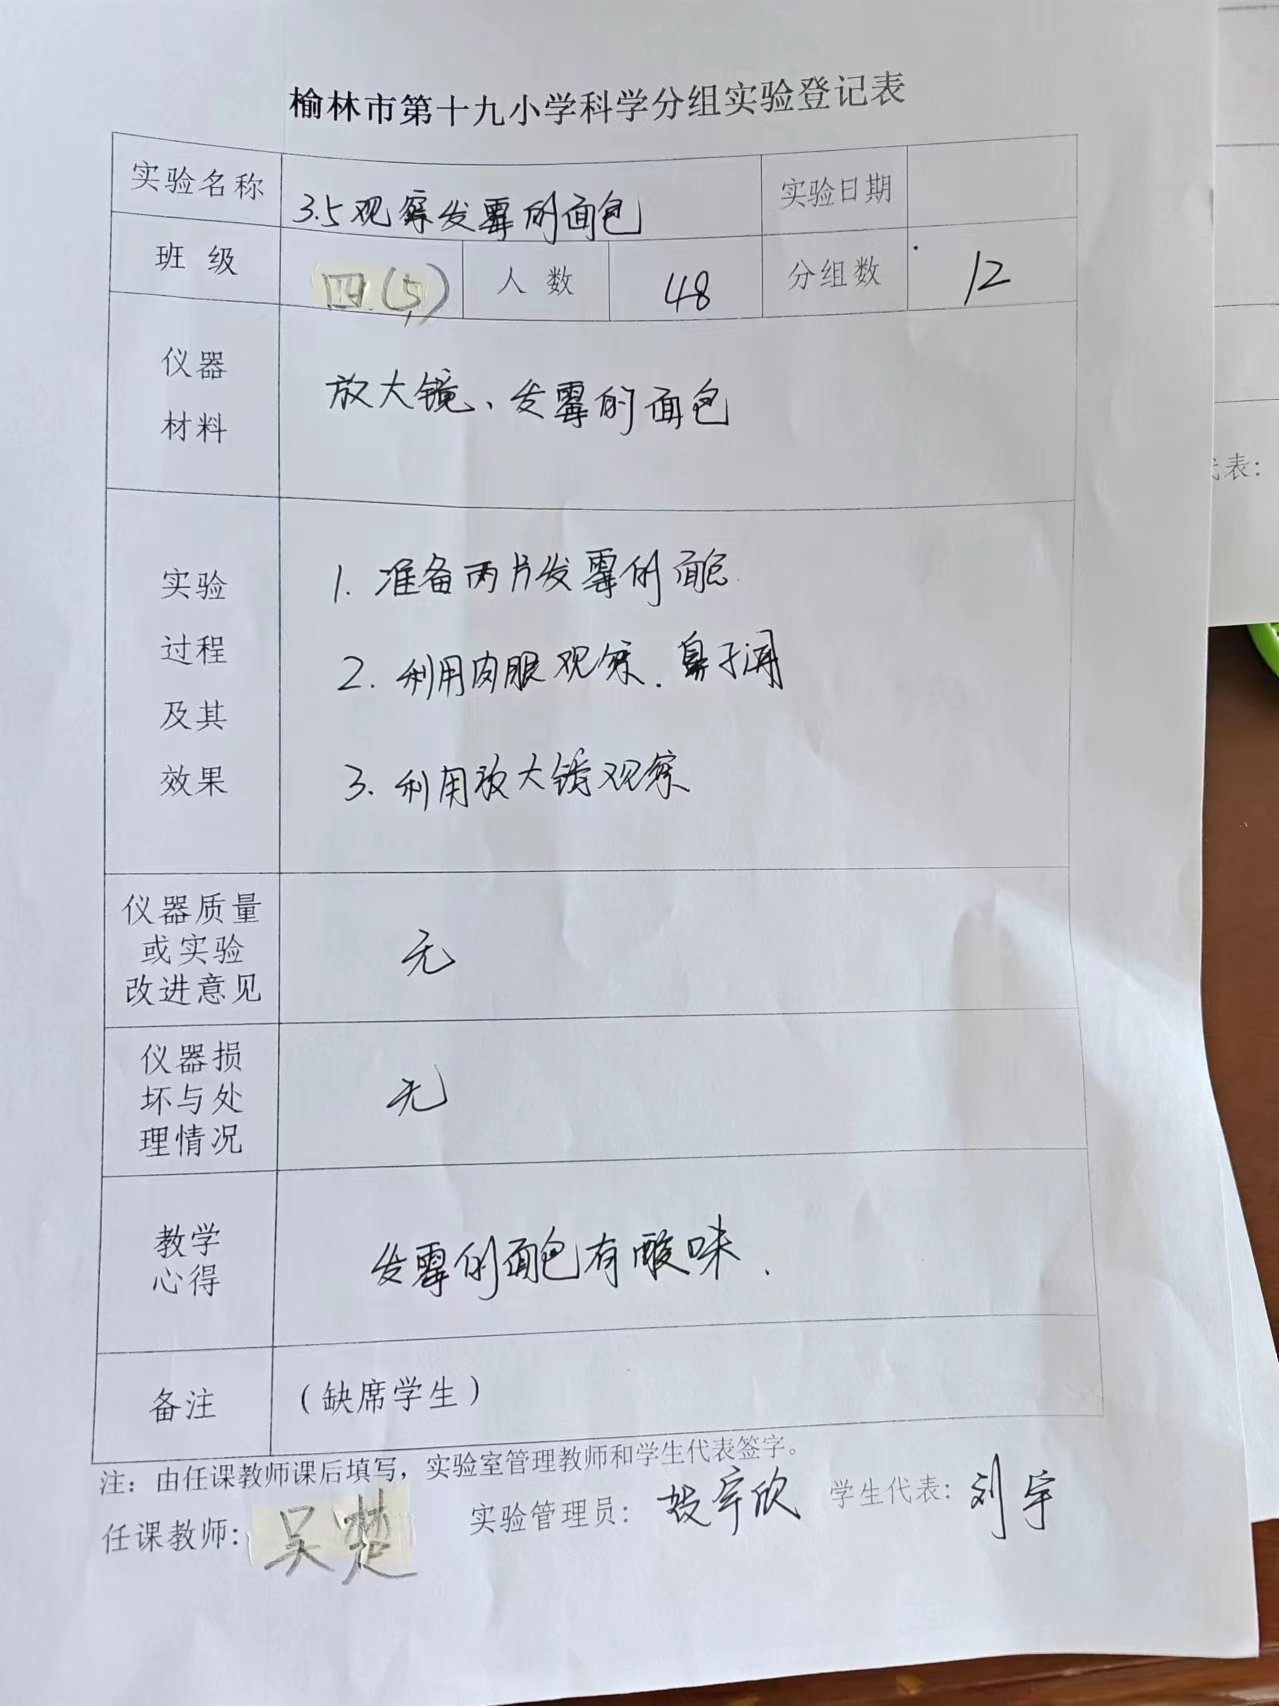 榆林市第十九小学科学分组实验登记表
实验名称 3.5观察发霉的面包 实验日期
班 级 四(5) 人 数 48 分组数 12
仪器
材料
放大镜、发霉的面包
实验
过程
及其
效果
1. 准备两片发霉的面包
2. 利用肉眼观察.鼻子闻
3. 利用放大镜观察
仪器质量
或实验
改进意见
无
仪器损
坏与处
理情况
无
教学
心得
发霉的面包有酸味.
备注 (缺席学生)
注：由任课教师课后填写，实验室管理教师和学生代表签字。
任课教师: 吴楚 实验管理员: 宇欣 学生代表: 刘宇
代表: